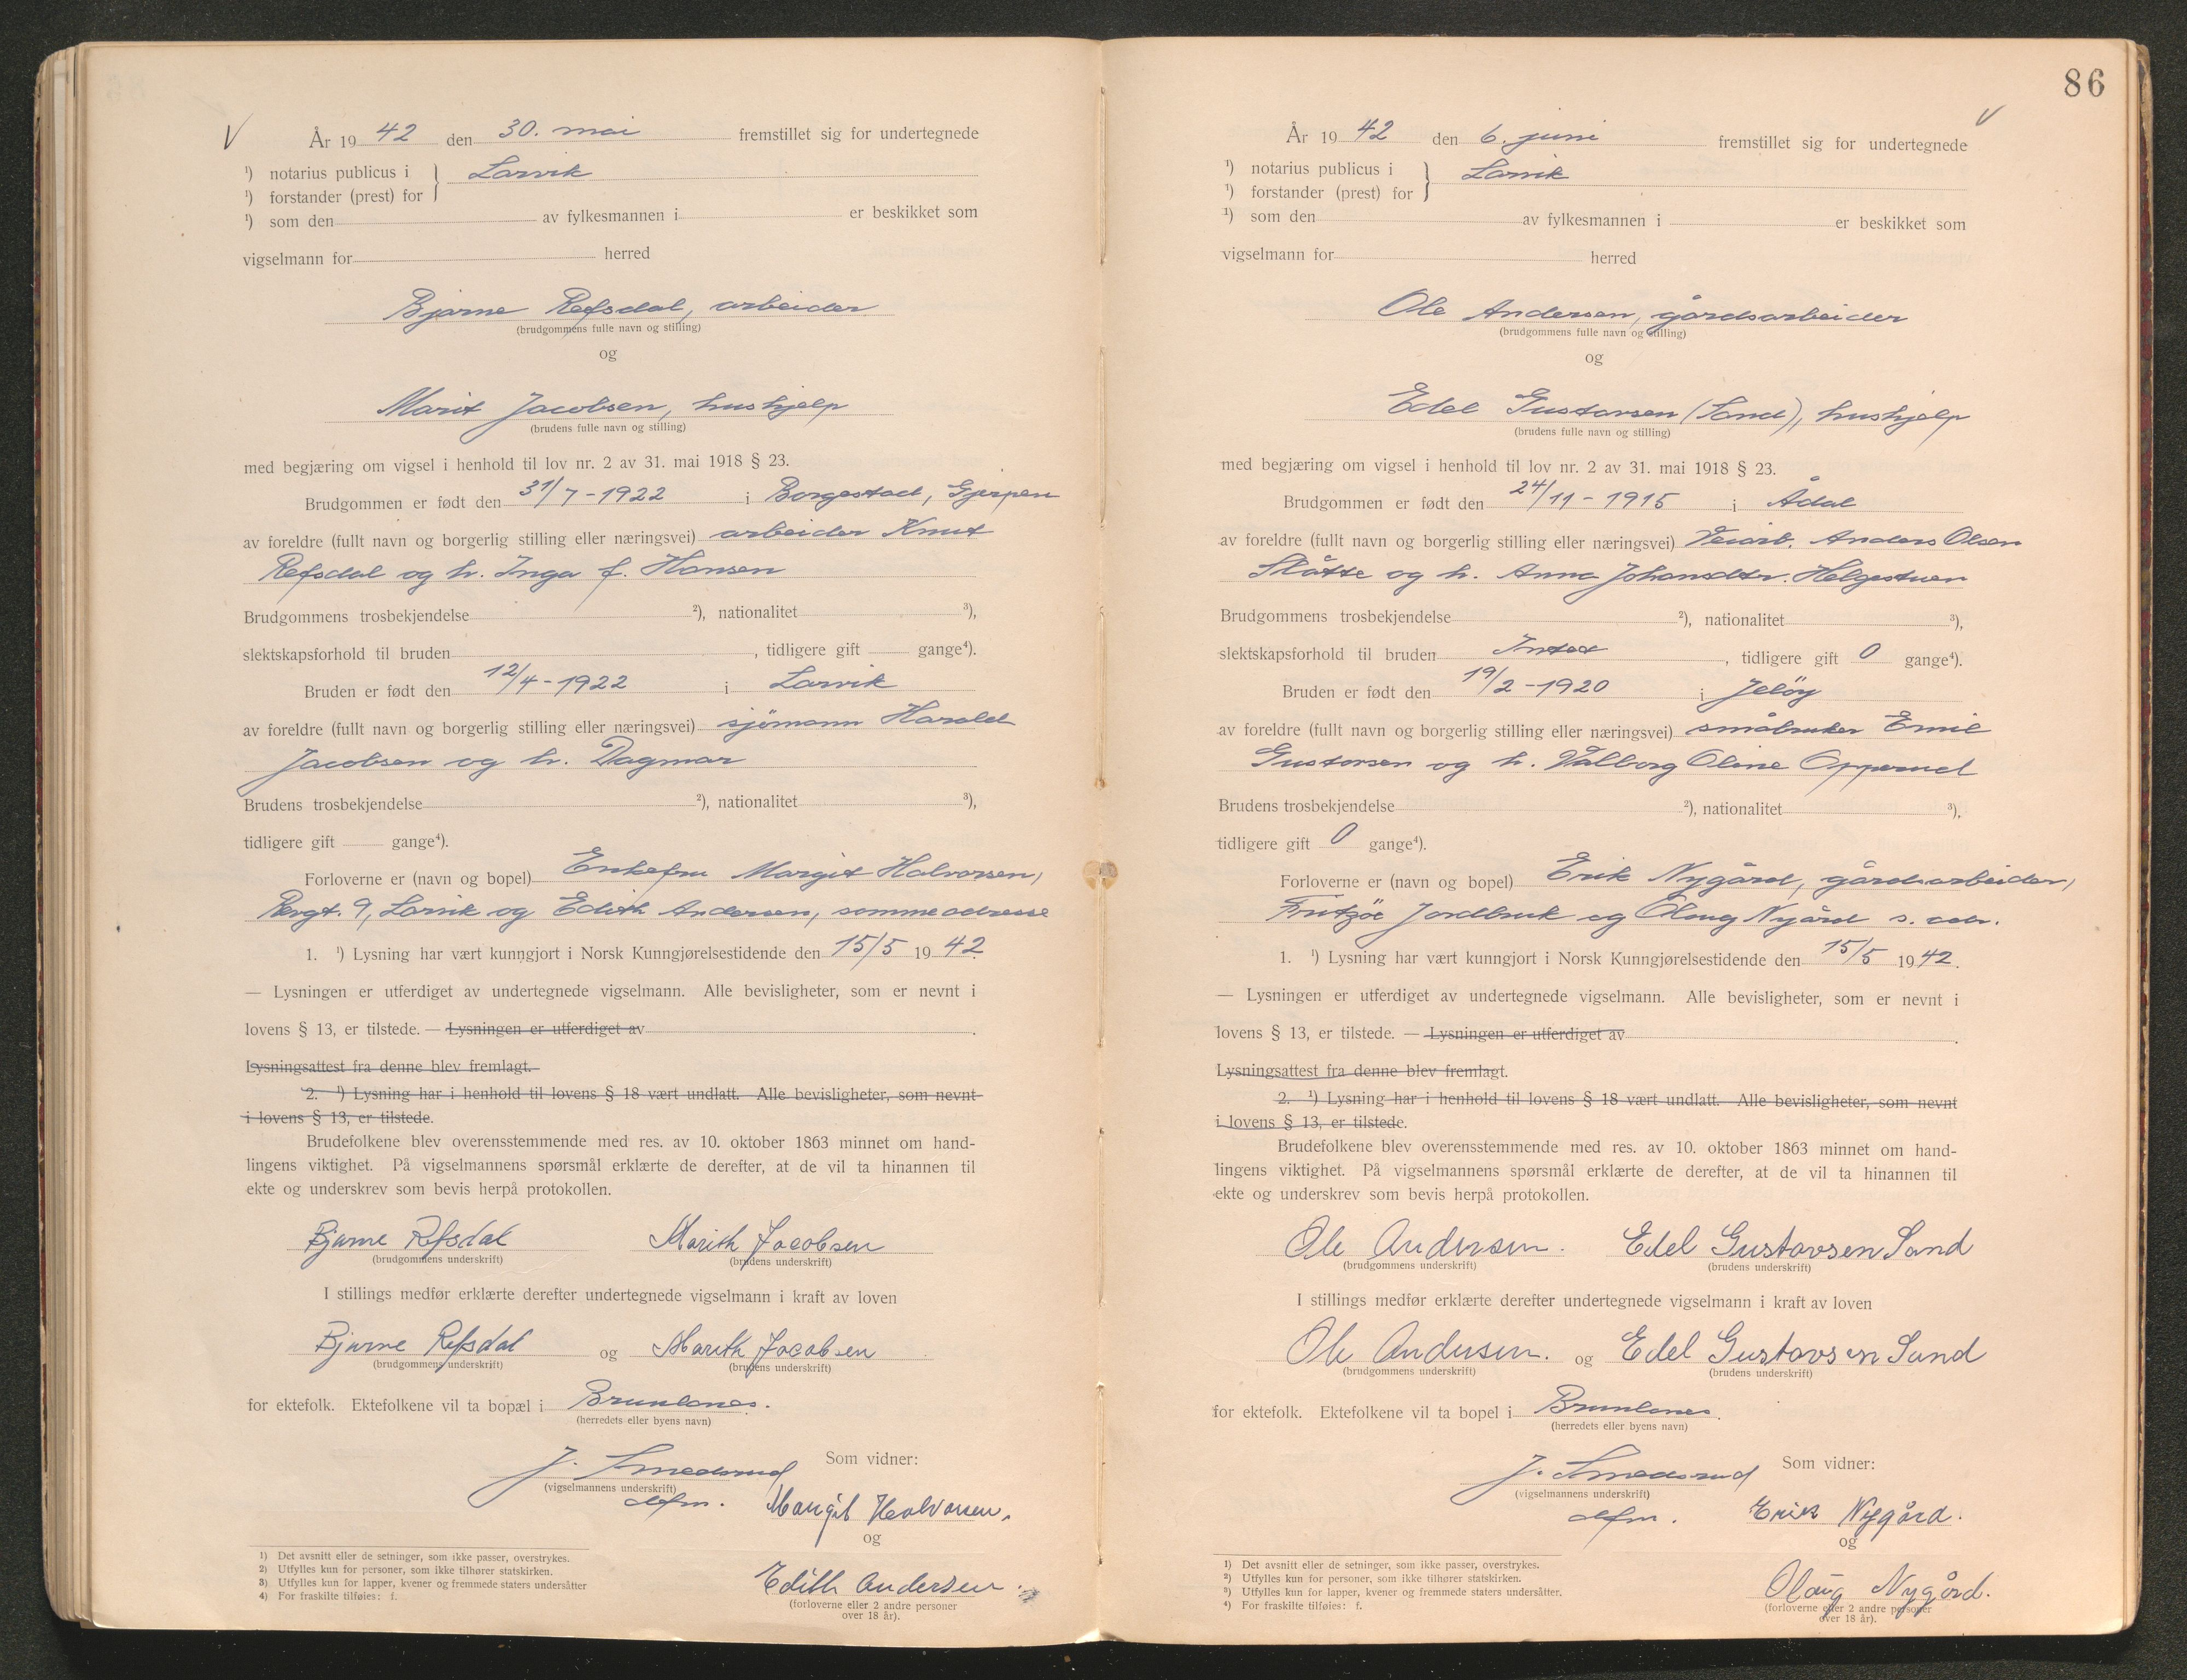 V År 19 42 den 30. mai fremstillet sig for undertegnede
¹) notarius publicus i } Larvik
¹) forstander (prest) for
¹) som den av fylkesmannen i er beskikket som
vigselmann for herred
Bjarne Refsdal, arbeider
(brudgommens fulle navn og stilling)
og
Marit Jacobsen, hushjelp
(brudens fulle navn og stilling)
med begjæring om vigsel i henhold til lov nr. 2 av 31. mai 1918 § 23.
Brudgommen er født den 31/7-1922 i Borgestad, Gjerpen
av foreldre (fullt navn og borgerlig stilling eller næringsvei) arbeider Knut
Refsdal og h. Inga f. Hansen
Brudgommens trosbekjendelse ²), nationalitet ³),
slektskapsforhold til bruden , tidligere gift gange⁴).
Bruden er født den 12/4-1922 i Larvik
av foreldre (fullt navn og borgerlig stilling eller næringsvei) sjømann Harald
Jacobsen og h. Dagmar
Brudens trosbekjendelse ²), nationalitet ³),
tidligere gift gange⁴).
Forloverne er (navn og bopel) Enkefru Margit Halvorsen,
9, Larvik og Edith Andersen, samme adresse
1. ¹) Lysning har vært kunngjort i Norsk Kunngjørelsestidende den 15/5 19 42.
— Lysningen er utferdiget av undertegnede vigselmann. Alle bevisligheter, som er nevnt i
lovens § 13, er tilstede. — Lysningen er utferdiget av .
Lysningsattest fra denne blev fremlagt.
2. ¹) Lysning har i henhold til lovens § 18 vært undlatt. Alle bevisligheter, som nevnt
i lovens § 13, er tilstede.
Brudefolkene blev overensstemmende med res. av 10. oktober 1863 minnet om hand-
lingens viktighet. På vigselmannens spørsmål erklærte de derefter, at de vil ta hinannen til
ekte og underskrev som bevis herpå protokollen.
Bjarne Refsdal Marith Jacobsen
(brudgommens underskrift) (brudens underskrift)
I stillings medfør erklærte derefter undertegnede vigselmann i kraft av loven
Bjarne Refsdal og Marith Jacobsen
(brudgommens underskrift) (brudens underskrift)
for ektefolk. Ektefolkene vil ta bopæl i Brunlanes.
(herredets eller byens navn)
J. Smedsrud Som vidner:
(vigselmannens underskrift)
dfm. Margit Halvorsen.
og
Edith Andersen.
(forloverne eller 2 andre personer
over 18 år).
1) Det avsnitt eller de setninger, som ikke passer, overstrykes.
2) Utfylles kun for personer, som ikke tilhører statskirken.
3) Utfylles kun for lapper, kvener og fremmede staters undersåtter
4) For fraskilte tilføies: f.
86
V
År 19 42 den 6. juni fremstillet sig for undertegnede
¹) notarius publicus i } Larvik
¹) forstander (prest) for
¹) som den av fylkesmannen i er beskikket som
vigselmann for herred
Ole Andersen, gårdsarbeider
(brudgommens fulle navn og stilling)
og
Edel Gustavsen (Sand), hushjelp
(brudens fulle navn og stilling)
med begjæring om vigsel i henhold til lov nr. 2 av 31. mai 1918 § 23.
Brudgommen er født den 24/11-1915 i Ådal
av foreldre (fullt navn og borgerlig stilling eller næringsvei) Veiarb. Anders Olsen
Slåtte og h. Anna Johansdtr. Helgestuen
Brudgommens trosbekjendelse ²), nationalitet ³),
slektskapsforhold til bruden Intet , tidligere gift 0 gange⁴).
Bruden er født den 19/2-1920 i Jeløy
av foreldre (fullt navn og borgerlig stilling eller næringsvei) småbruker Emil
Gustavsen og h. Valborg Oline Opperud
Brudens trosbekjendelse ²), nationalitet ³),
tidligere gift 0 gange⁴).
Forloverne er (navn og bopel) Erik Nygård, gårdsarbeider,
Fritzøe Jordbruk og Olaug Nygård s. adr.
1. ¹) Lysning har vært kunngjort i Norsk Kunngjørelsestidende den 15/5 19 42.
— Lysningen er utferdiget av undertegnede vigselmann. Alle bevisligheter, som er nevnt i
lovens § 13, er tilstede. — Lysningen er utferdiget av .
Lysningsattest fra denne blev fremlagt.
2. ¹) Lysning har i henhold til lovens § 18 vært undlatt. Alle bevisligheter, som nevnt
i lovens § 13, er tilstede.
Brudefolkene blev overensstemmende med res. av 10. oktober 1863 minnet om hand-
lingens viktighet. På vigselmannens spørsmål erklærte de derefter, at de vil ta hinannen til
ekte og underskrev som bevis herpå protokollen.
Ole Andersen. Edel Gustavsen Sand
(brudgommens underskrift) (brudens underskrift)
I stillings medfør erklærte derefter undertegnede vigselmann i kraft av loven
Ole Andersen. og Edel Gustavsen Sand
(brudgommens underskrift) (brudens underskrift)
for ektefolk. Ektefolkene vil ta bopel i Brunlanes.
(herredets eller byens navn)
J. Smedsrud Som vidner:
(vigselmannens underskrift)
dfm. Erik Nygård.
og
Olaug Nygård.
(forloverne eller 2 andre personer
over 18 år).
1) Det avsnitt eller de setninger, som ikke passer, overstrykes.
2) Utfylles kun for personer, som ikke tilhører statskirken.
3) Utfylles kun for lapper, kvener og fremmede staters undersåtter.
4) For fraskilte tilføies: f.